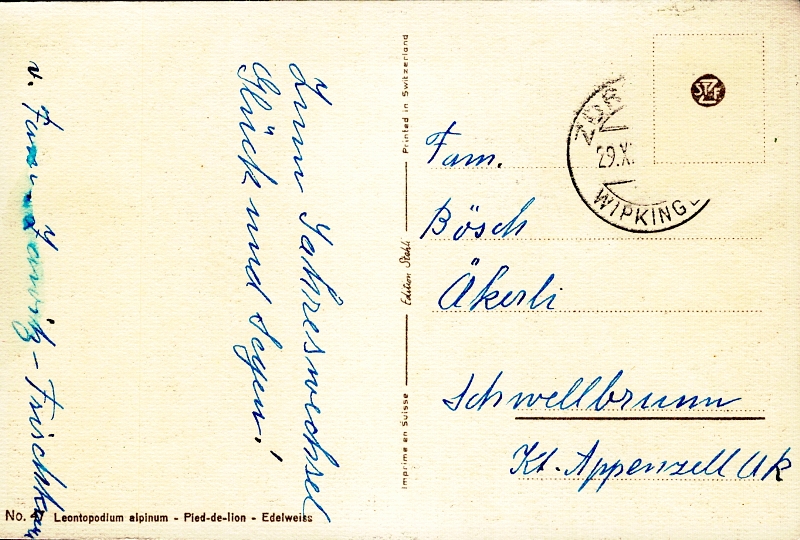 Zum Jahreswechsel
Glück und Segen!
v. Fam.
No. 4 Leontopodium alpinum - Pied-de-lion - Edelweiss
Printed in Switzerland
Edition Stehli
Imprimé en Suisse
29.X
WIPKING
Fam.
Bösch
Äkerli
Schwellbrunn
Kt. Appenzell